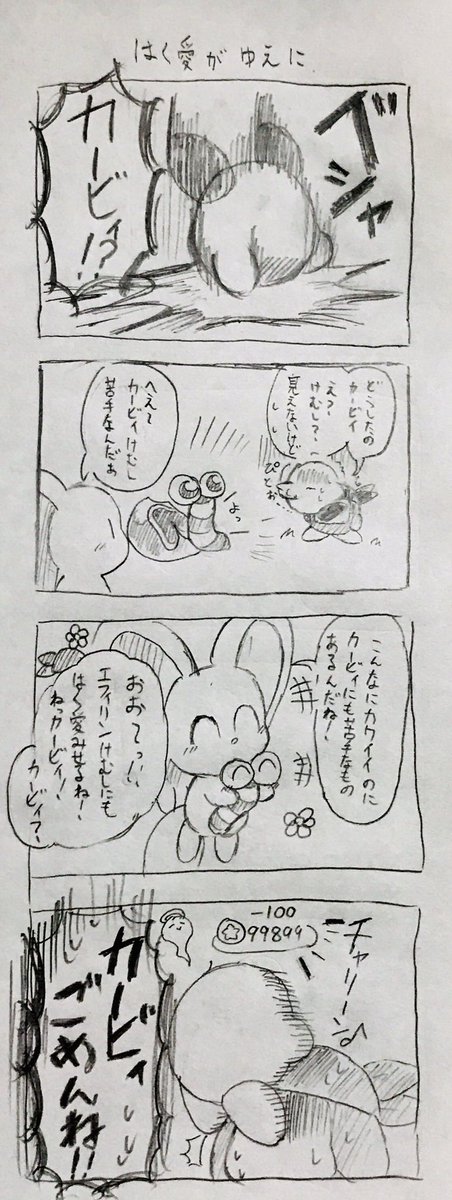 はく愛がゆえに
グシャ
カービィ!?
どうしたの
カービィ
え?
けむし?
見えないけど
ぴとぉ
よっ
へえ〜
カービィけむし
苦手なんだぁ
こんなにカワイイのに
カービィにも苦手なもの
あるんだね!
おお〜っ!
エフィリンけむしにも
はく愛み芽ね!
ねカービィ!
カービィ?
チャリーン♪
-100
99899
カービィ
ごめんね!!